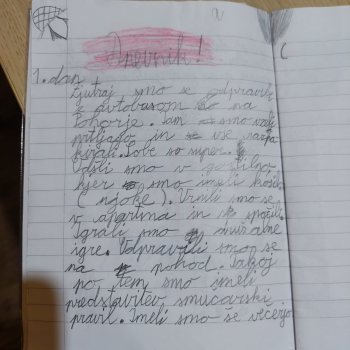 Dnevnik!
1. dan
Zjutraj smo se odpravili
z avtobusom do na
Pohorje. Tam smo vzeli
prtljago in vse
Sobe so super.
Odšli smo v gostilno
kjer smo imeli kosilo
(njoke). Vrnili smo se
v apartma in
Igrali smo
igre. Odpravili smo se
na pohod. Takoj
po tem smo imeli
predstavitev smučarski
pravil. Imeli smo še večerjo